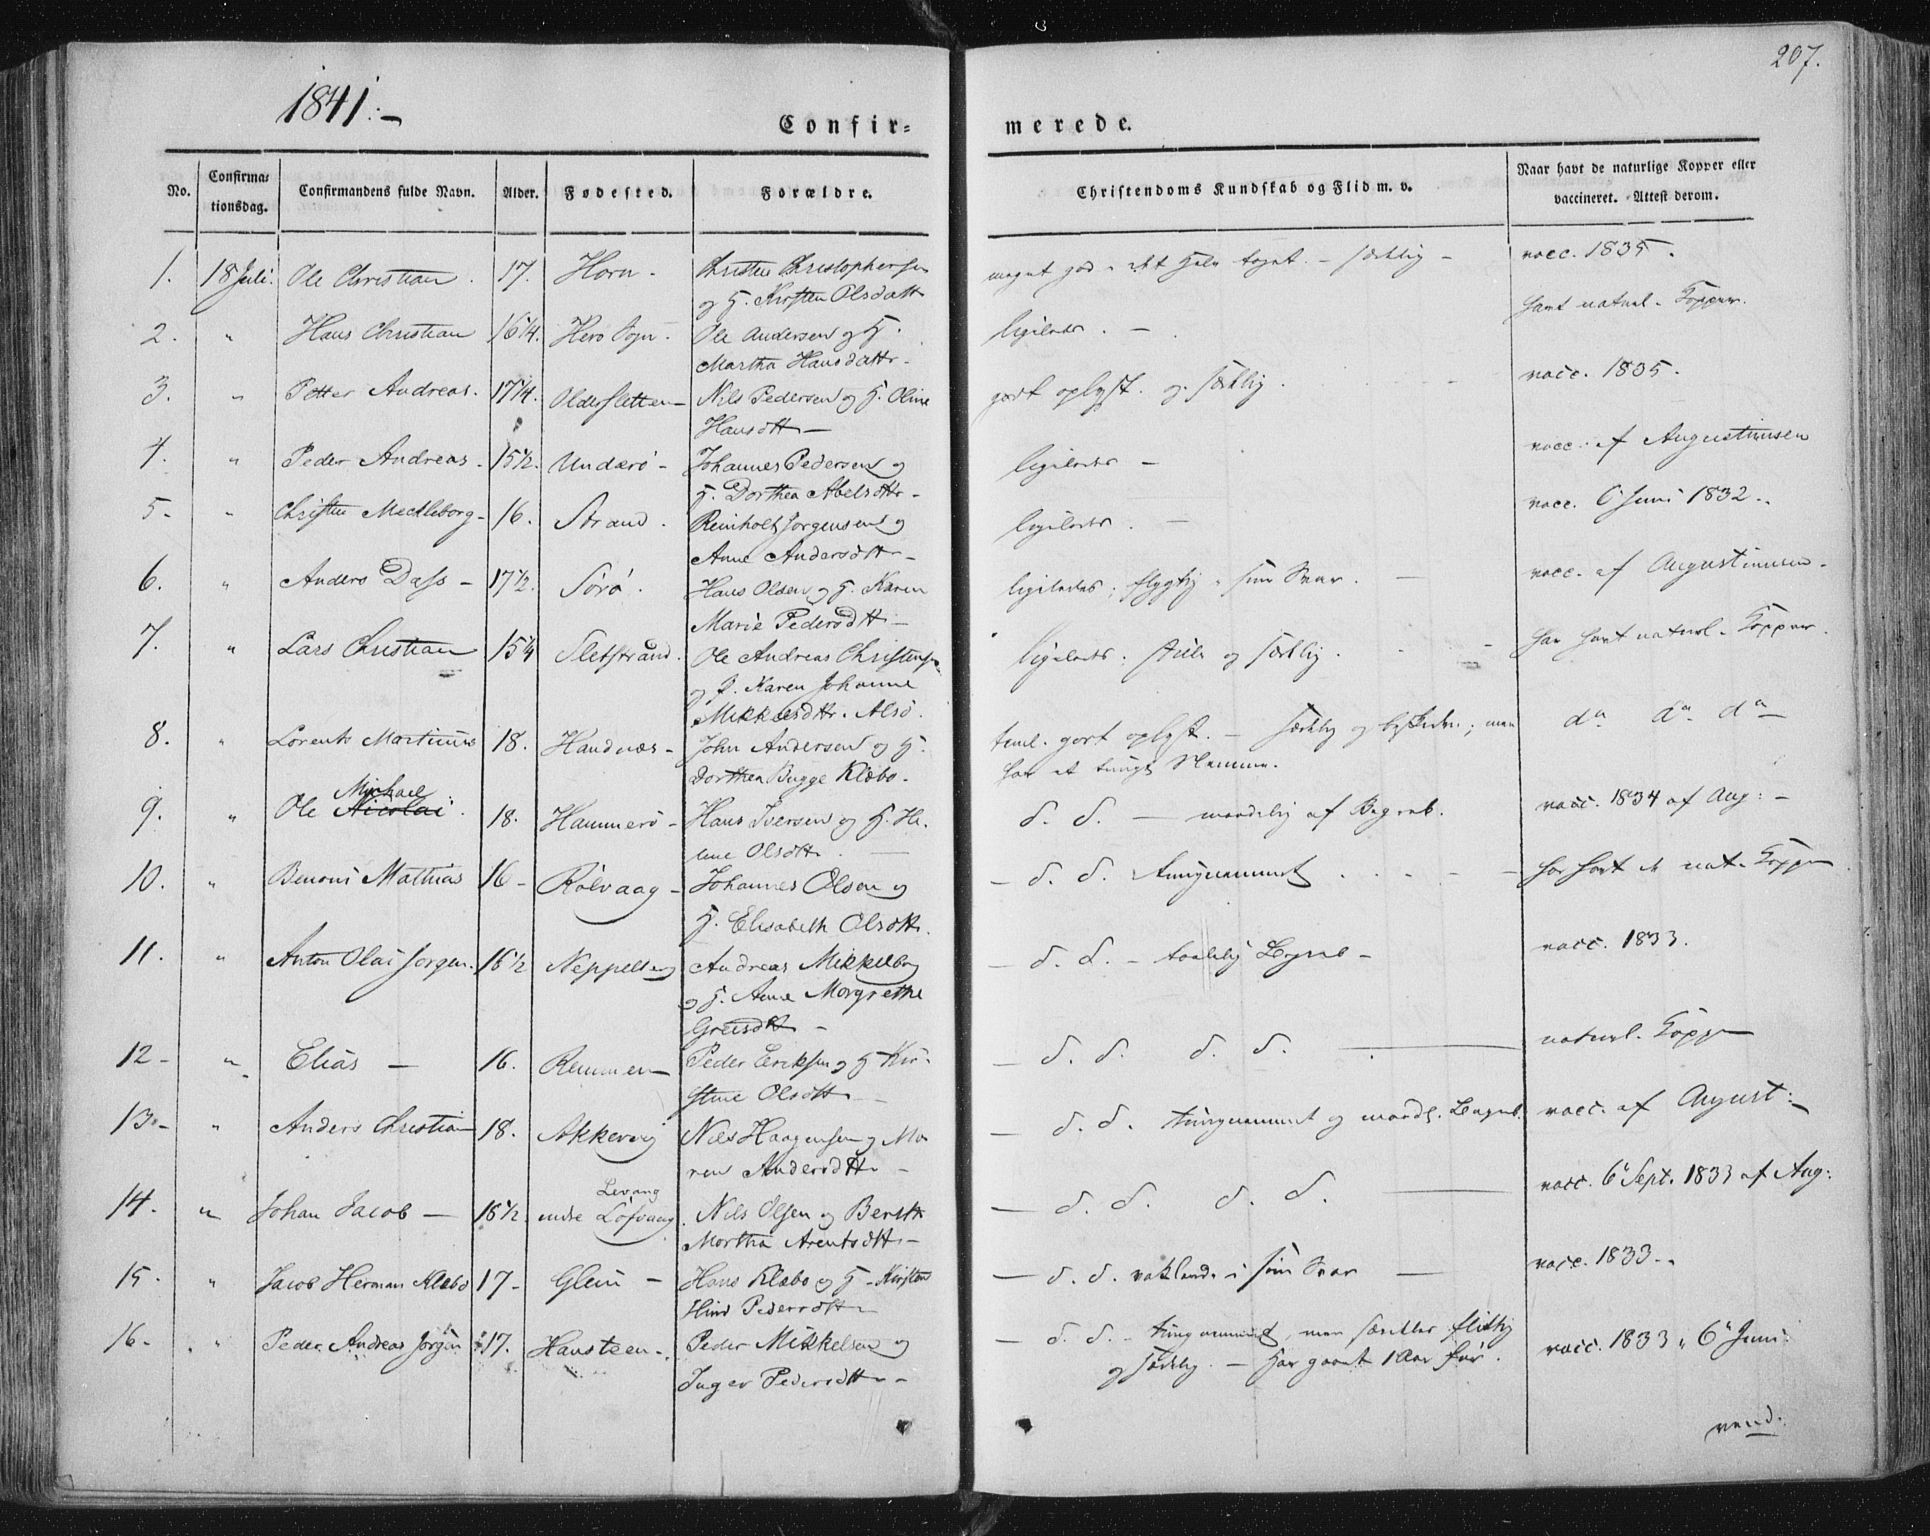 207.
1841.–
Confir=
merede.
No.
Confirma=
tionsdag.
Confirmandens fulde Navn.
Alder.
Fødested.
Forældre.
Christendoms Kundskab og Flid m. v.
Naar havt de naturlige Kopper eller
vaccineret. Attest derom.
1. 18 Juli. Ole Christian. 17. Horn. Christen Christophersen
og H. Kirsten Olsdattr
meget god – sædelig – vacc. 1835.
2. " Hans Christian 16¼. Herø Sogn. Ole Andersen og H.
Martha Hansdattr.
ligeledes. – havt naturl. Kopper.
3. " Petter Andreas. 17¼. Oldersletten – Nils Pedersen og H. Oline
Hansdttr –
godt oplyst og sædelig. vacc. 1835.
4. " Peder Andreas. 15½. Underø – Johannes Pedersen og
H. Dorthea Abelsdttr –
ligeledes – vacc. af Augustinusen
5 – " Christen Meckleborg – 16. Strand. Reinholt Jørgensen og
Anne Andersdttr –
ligeledes. – vacc. 6 Juni 1832.
6. " Anders Dass – 17½. Sørø. Hans Olsen og H. Karen
Marie Pedersdttr –
ligeledes; flygtig i sine Svar. – vacc. af Augustinusen.
7. " Lars Christian 15¼ Sletstrand. Ole Andreas Christensen
og H. Karen Johanne
Mikkelsdttr. Alsø.
ligeledes; stille og sædelig. har havt naturl. Kopper.
8. " Lorents Martinus 18. Handnæs – John Andersen og H.
Dorthea Bugge Klæbo.
teml. godt oplyst. – sædelig og beskeden; men
har et tungt Nemme.
do do do
9. " Ole Nicolai Michael. 18. Hammerø – Hans Iversen og H. He-
lene Olsdttr. –
d. d. – maadelig af Begreb. vacc. 1834 af Aug: –
10. " Benoni Mathias 16 – Rølvaag – Johannes Olsen og
H. Elisabeth Olsdttr.
– d. d. tungnemmet har havt de nat. Kopper
11. " Anton Olai Jørgen. 16½ Neppelberg Andreas Mikkelborg
og H. Anne Margrethe
Greisdttr –
– d. d. – taalelig Begreb – vacc. 1833.
12 – " Elias – 16. Remmen Peder Eriksen og H Kir-
stine Olsdttr –
– d. d. d. d. naturl. Kopper
13 – " Anders Christian 18. Akkervig Nils Haagensen og Ma
ren Andersdttr –
– d. d. tungnemmet og maadl. Begreb. vacc. af August: –
14. " Johan Jacob – 16½. indre Løfvaag Levang. Nils Olsen og Bereth
Martha Arentsdttr –
– d. d. d. d. vacc. 6 Sept. 1833 af Aug:
15. " Jacob Herman Klæbo 17 – Glein – Hans Klæbo og H – Kirsten
Hind Pedersdttr
– d. d. vaklende i sine Svar – vacc. 1833.
16 – " Peder Andreas Jørgen 17. Hansteen – Peder Mikkelsen og
Inger Pedersdttr –
– d. d. – tungnemmet, men særdeles flittig
og sædelig. – har gaaet 1 Aar før.
vacc. 1833, 6 Juni
vend.